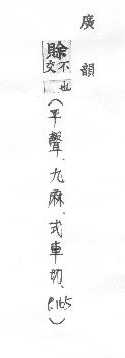 廣韻
賖不交也(平聲、九麻、式車切、P.165)